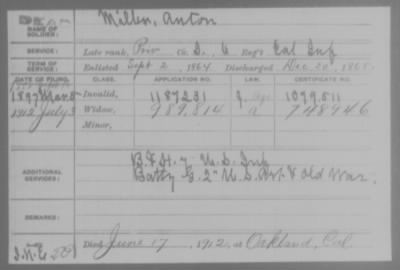 Dead
NAME OF SOLDIER: Miller, Anton
SERVICE: Late rank, Priv Co. D, 6 Reg't Cal Inf
TERM OF SERVICE: Enlisted Sept 2, 1864 Discharged Dec 20, 1865
DATE OF FILING. CLASS. APPLICATION NO. LAW. CERTIFICATE NO.
1897 Mar 5 Invalid, 1187231 1079.511
1912 July 3 Widow, 989,814 748946
Minor,
ADDITIONAL SERVICES: B. & H. 7" U.S. Inf
Batty G. 2" U.S. Art. & Old War.
REMARKS:
Died June 17, 1912, at Oakland, Cal.